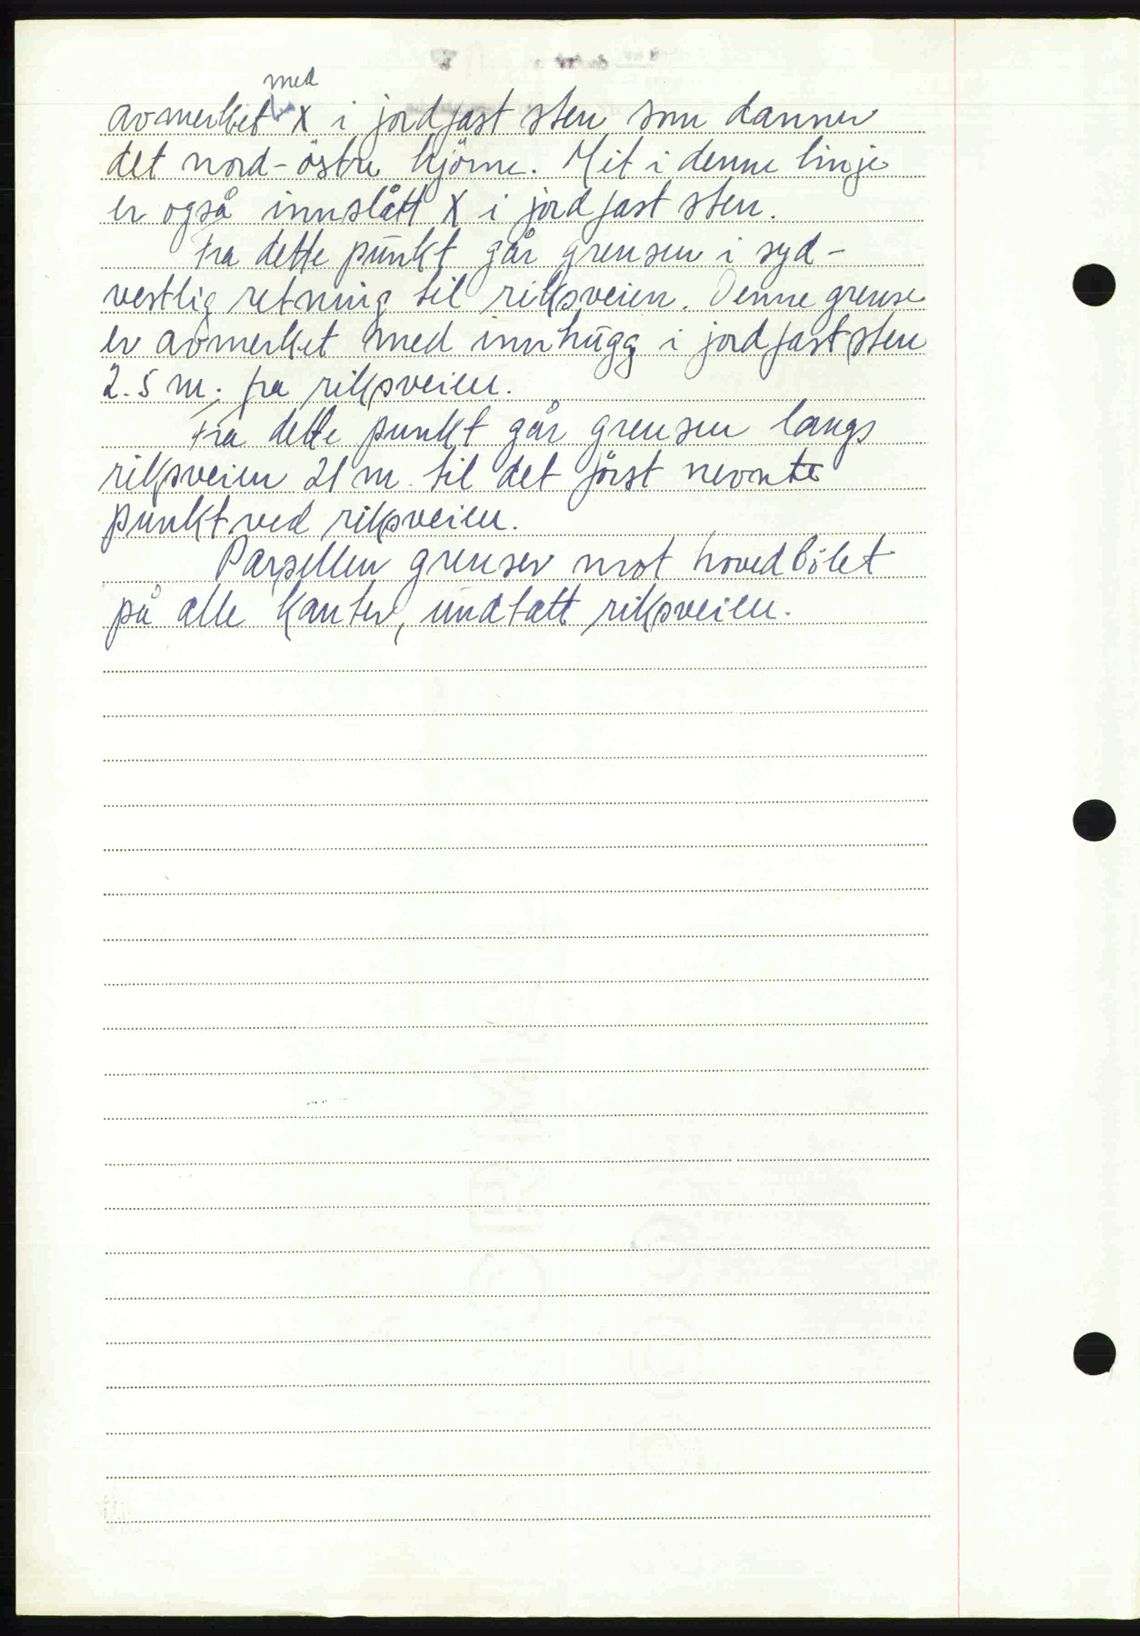 avmerket med X i jordfast sten som danner
det nord-östre hjörne. Mit i denne linje
er også innslått X i jordfast sten.
Fra dette punkt går grensen i syd-
vestlig retning til riksveien. Denne grense
er avmerket med innhugg i jordfast sten
2.5 m. fra riksveien.
Fra dette punkt går grensen langs
riksveien 21 m. til det först nevnte
punkt ved riksveien.
Parsellen grenser mot hovedbölet
på alle kanter, undtatt riksveien.